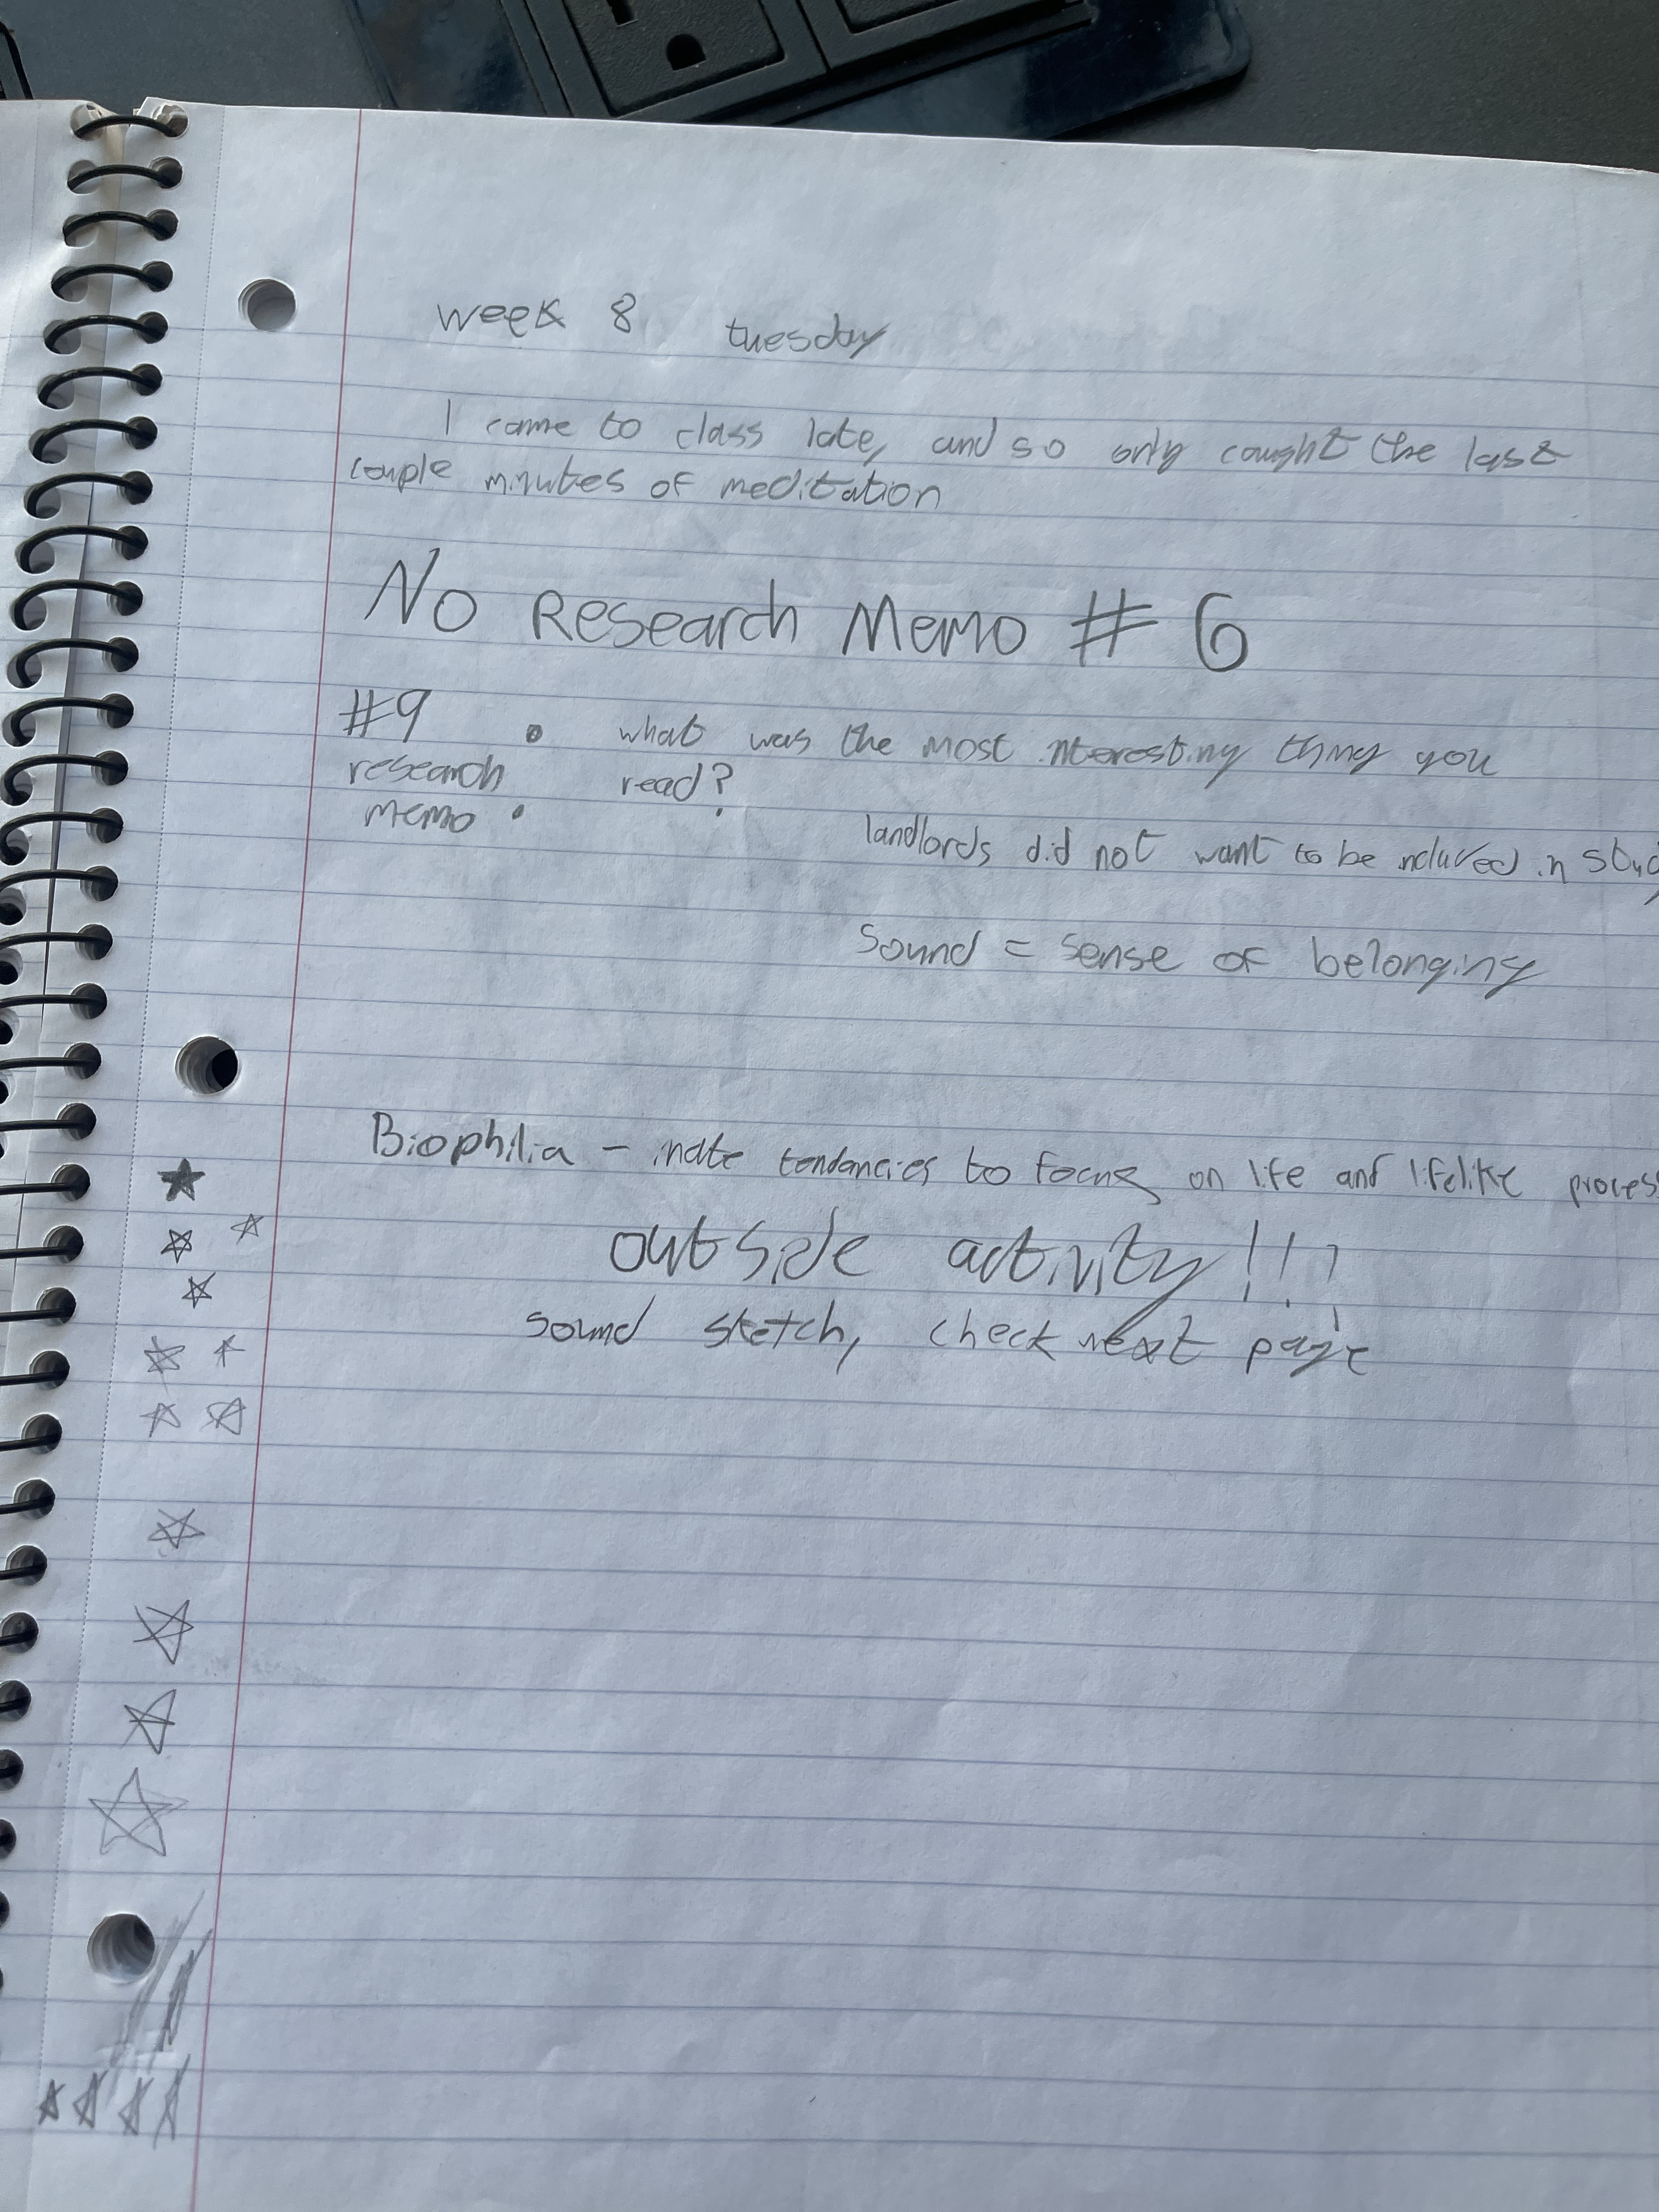 week 8 tuesday
I came to class late, and so only caught the last
couple minutes of meditation
No Research Memo # 6
#9 • what was the most interesting thing you
research read?
memo •
landlords did not want to be included in study
Sound = sense of belonging
Biophilia - inate tendancies to focus on life and lifelike proces
outside activity!!!
sound sketch, check next page